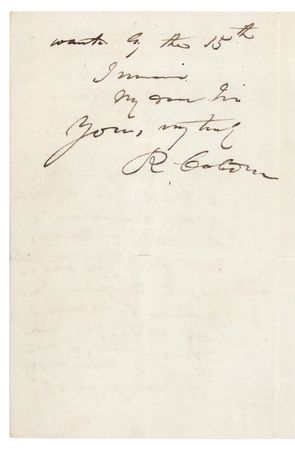 wants by the 15th
I remain
My dear Sir
Yours, very truly
R.